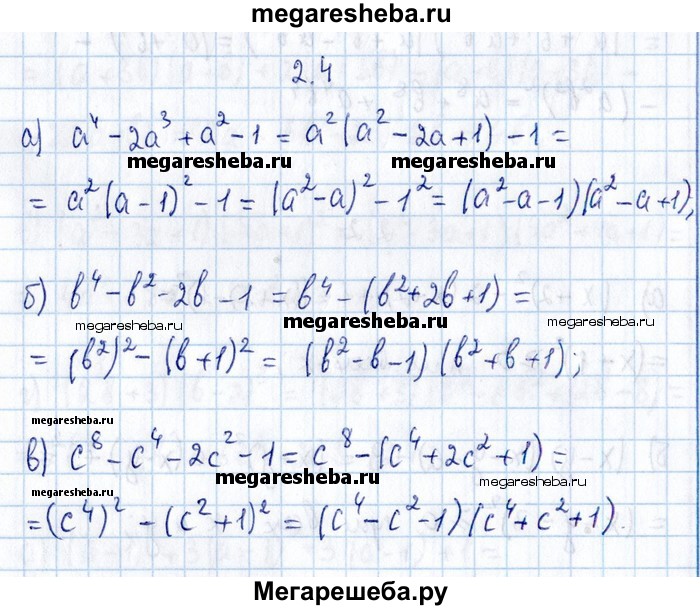 megaresheba.ru
2.4
megaresheba.ru
а) a⁴ - 2a³ + a² - 1 = a² (a² - 2a + 1) - 1 =
megaresheba.ru megaresheba.ru
= a² (a - 1)² - 1 = (a² - a)² - 1² = (a² - a - 1)(a² - a + 1),
б) b⁴ - b² - 2b - 1 = b⁴ - (b² + 2b + 1) =
megaresheba.ru megaresheba.ru megaresheba.ru
= (b²)² - (b + 1)² = (b² - b - 1) (b² + b + 1);
megaresheba.ru
в) c⁸ - c⁴ - 2c² - 1 = c⁸ - (c⁴ + 2c² + 1) =
megaresheba.ru megaresheba.ru megaresheba.ru
= (c⁴)² - (c² + 1)² = (c⁴ - c² - 1) (c⁴ + c² + 1).
Мегарешеба.ру